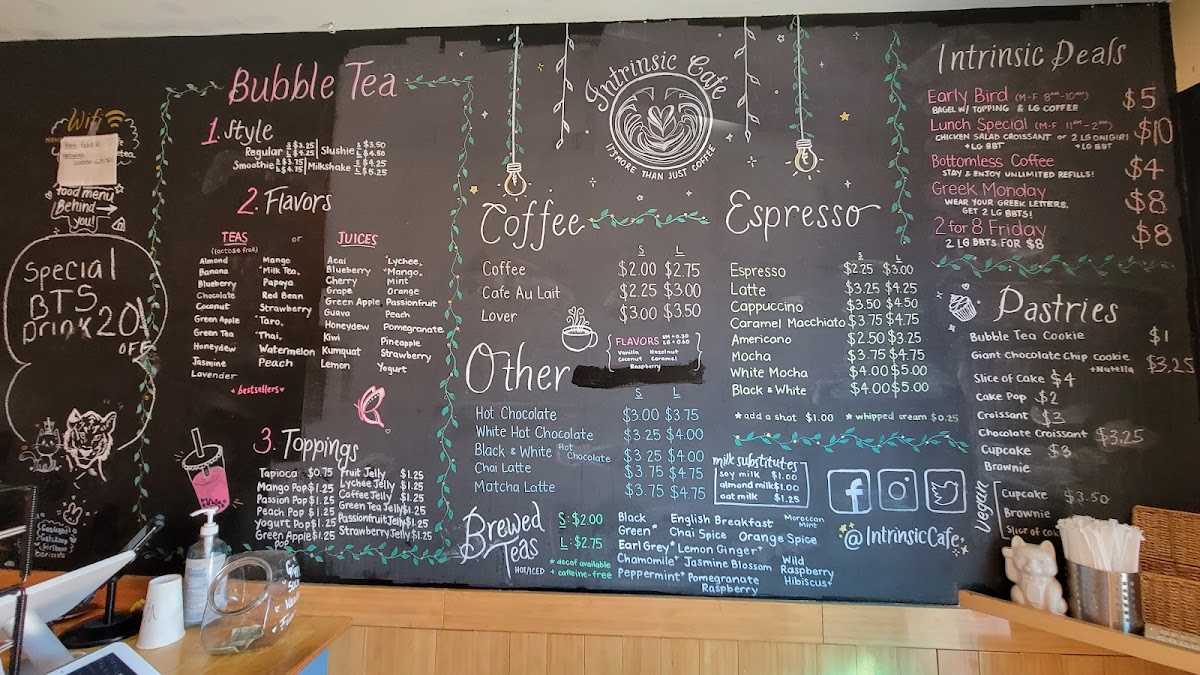 Wifi
food menu
Behind
you!
Special
BTS
Drink 20%
OFF
Bubble Tea
1. Style
Regular S $3.25 L $4.25 | Slushie S $3.50 L $4.50
Smoothie S $3.75 L $4.75 | Milkshake S $4.25 L $5.25
2. Flavors
TEAS or JUICES
(lactose free)
Almond
Banana
Blueberry
Chocolate
Coconut
Green Apple
Green Tea
Honeydew
Jasmine
Lavender
Mango
*Milk Tea*
Papaya
Red Bean
Strawberry
*Taro*
*Thai*
Watermelon
Peach
Acai
Blueberry
Cherry
Grape
Green Apple
Guava
Honeydew
Kiwi
Kumquat
Lemon
*Lychee*
*Mango*
Mint
Orange
Passionfruit
Peach
Pomegranate
Pineapple
Strawberry
Yogurt
*bestsellers
3. Toppings
Tapioca $0.75
Mango Pop $1.25
Passion Pop $1.25
Peach Pop $1.25
Yogurt Pop $1.25
Green Apple $1.25
Pop
Fruit Jelly $1.25
Lychee Jelly $1.25
Coffee Jelly $1.25
Green Tea Jelly $1.25
Passionfruit Jelly $1.25
Strawberry Jelly $1.25
Intrinsic Cafe
IT'S MORE THAN JUST COFFEE
Coffee
S L
Coffee $2.00 $2.75
Cafe Au Lait $2.25 $3.00
Lover $3.00 $3.50
FLAVORS SM +0.30
LG +0.60
Vanilla Hazelnut
Coconut Caramel
Raspberry
Other
S L
Hot Chocolate $3.00 $3.75
White Hot Chocolate $3.25 $4.00
Black & White Hot Chocolate $3.25 $4.00
Chai Latte $3.75 $4.75
Matcha Latte $3.75 $4.75
Espresso
S L
Espresso $2.25 $3.00
Latte $3.25 $4.25
Cappuccino $3.50 $4.50
Caramel Macchiato $3.75 $4.75
Americano $2.50 $3.25
Mocha $3.75 $4.75
White Mocha $4.00 $5.00
Black & White $4.00 $5.00
*add a shot $1.00 *whipped cream $0.25
milk substitutes
soy milk $1.00
almond milk $1.00
oat milk $1.25
@IntrinsicCafe
Brewed
Teas
HOT/ICED
S: $2.00
L: $2.75
* decaf available
+ caffeine-free
Black
Green*
Earl Grey*
Chamomile+
Peppermint+
English Breakfast
Chai Spice
Lemon Ginger+
Jasmine Blossom
Pomegranate
Raspberry
Moroccan
Mint
Orange Spice
Wild
Raspberry
Hibiscus+
Intrinsic Deals
Early Bird (M-F 8AM-10AM) $5
BAGEL W/ TOPPING & LG COFFEE
Lunch Special (M-F 11AM-2PM) $10
CHICKEN SALAD CROISSANT or 2 LG ONIGIRI
+LG BBT +LG BBT
Bottomless Coffee $4
STAY & ENJOY UNLIMITED REFILLS!
Greek Monday $8
WEAR YOUR GREEK LETTERS,
GET 2 LG BBTS!
2 for 8 Friday $8
2 LG BBTS FOR $8
Pastries
Bubble Tea Cookie $1
Giant Chocolate Chip Cookie
+Nutella $3.25
Slice of Cake $4
Cake Pop $2
Croissant $3
Chocolate Croissant $3.25
Cupcake $3
Brownie
Vegan
Cupcake $3.50
Brownie
Slice of